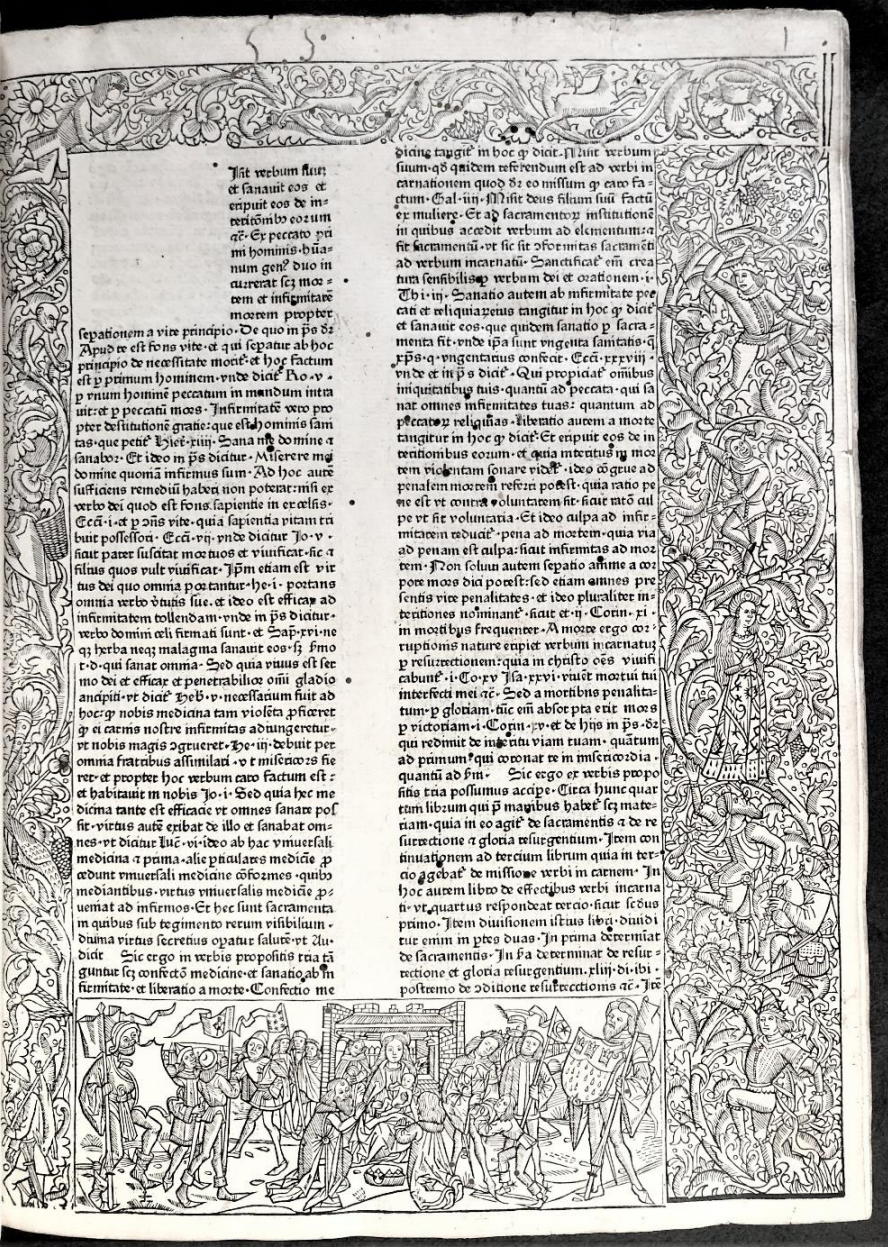 Isit verbum suum
et sanauit eos et
eripuit eos de in-
teritōnibꝰ eorum
⁊c̄· Ex peccato pri
mi hominis· hūa-
num genꝰ duo in
currerat scꝫ mor=
tem et infirmitatē
mortem propter
sepationem a vite principio· De quo in p̄s dr̄
Apud te est fons vite· et qui sepatur ab hoc
principio de necessitate morit᷑· et hoc factum
est ꝑ primum hominem· vnde dicit᷑ Ro· v·
ꝑ vnum hominē peccatum in mundum intra
uit: et ꝑ peccatū mors· Infirmitatē vero pro
pter destitutionē gratie: que est hominis sani
tas· que petit᷑ Hier· xiiij· Sana me domine ⁊
sanabor· Et ideo in p̄s dicitur· Miserere mei
domine quoniā infirmus sum· Ad hoc autē
sufficiens remediū haberi non poterat· nisi ex
verbo dei quod est fons sapientie in excelsis·
Ecci· i· et ꝑ ɔ̄ns vite· quia sapientia vitam tri
buit possessori· Ecci· vij· vnde dicitur Jo· v·
sicut pater suscitat mortuos et viuificat· sic ⁊
filius quos vult viuificat· Ip̄m etiam est vir
tus dei quo omnia portantur· he· i· portans
omnia verbo v̄tutis sue· et ideo est efficax ad
infirmitatem tollendam· vnde in p̄s dicitur·
verbo domini celi firmati sunt· et Sap̄· xvi· ne
qꝫ herba neqꝫ malagma sanauit eos· sꝫ s̄mo
t· d· qui sanat omnia· Sed quia viuus est ser
mo dei et efficax et penetrabilior omī gladio
ancipiti· vt dicit᷑ Heb̄· v· necessarium fuit ad
hoc: ꝙ nobis medicina tam violēta ꝓficeret
ꝙ ei carnis nostre infirmitas adiungeretur·
vt nobis magis ɔgrueret· He· iij· debuit per
omnia fratribus assimilari· vt misericors fie
ret· et propter hoc verbum caro factum est:
et habitauit in nobis Jo· i· Sed quia hec me
dicina tante est efficacie vt omnes sanare pos
sit· virtus autē exibat de illo et sanabat om-
nes· vt dicitur Luc̄· vi· ideo ab hac vniuersali
medicina ⁊ prima· alie ꝑticulares medicīe ꝓ
cedunt vniuersali medicine cōformes· quibꝰ
mediantibus· virtus vniuersalis medicīe ꝓ-
ueniat ad infirmos· Et hec sunt sacramenta
in quibus sub tegimento rerum visibilium·
diuina virtus secretius oꝑatur salutē· vt Au·
dicit Sic ergo in verbis propositis tria tā
guntur scꝫ confectō medicine· et sanatio ab in
firmitate· et liberatio a morte· Confectio me
dicine tangit᷑ in hoc ꝙ dicit· Misit verbum
suum· qd̄ quidem referendum est ad verbi in
carnationem quod dr̄ eo missum ꝙ caro fa=
ctum· Gal· iiij· Misit deus filium suū factū
ex muliere· Et ad sacramentoꝝ institutionē
in quibus accedit verbum ad elementum: ⁊
fit sacramentū· vt sic sit ɔformitas sacramēti
ad verbum incarnatū· Sanctificat᷑ em̄ crea
tura sensibilis ꝑ verbum dei et orationem· i·
Thi· iij· Sanatio autem ab infirmitate pec
cati et reliquiaꝝ eius tangitur in hoc ꝙ dicit᷑
et sanauit eos· que quidem sanatio ꝑ sacra=
menta fit· vnde ip̄a sunt vngenta sanitatis· q̄
xp̄s· q· vngentarius confecit· Ecci· xxxviij·
vnde et in p̄s dicit᷑· Qui propiciat᷑ om̄ibus
iniquitatibus tuis· quantū ad peccata· qui sa
nat omnes infirmitates tuas: quantum ad
peccatoꝝ reliquias· Liberatio autem a morte
tangitur in hoc ꝙ dicit᷑· Et eripuit eos de in
teritionibus eorum· et quia interitus in mor
tem violentam sonare videt᷑· ideo cōgrue ad
penalem mortem referri potest· quia ratio pe
ne est vt contra voluntatem sit· sicut ratō cul
pe vt sit voluntaria· Et ideo culpa ad infir=
mitatem reducit᷑· pena ad mortem· quia via
ad penam est culpa: sicut infirmitas ad mor
tem· Non solum autem sepatio anime a cor
pore mors dici potest: sed etiam omnes pre
sentis vite penalitates· et ideo pluraliter in-
teritiones nominant᷑· sicut et· ij· Corin· xi·
in mortibus frequenter· A morte ergo cor=
ruptionis nature eripiet verbum incarnatū
ꝑ resurrectionem: quia in christo oēs viuifi
cabunt᷑· i· Co· xv Isa· xxvi· viuēt mortui tui
interfecti mei ⁊c̄· Sed a mortibus penalita=
tum· ꝑ gloriam· tūc em̄ absorpta erit mors
ꝑ victoriam· i· Corin· xv· et de hijs in p̄s· dr̄
qui redimit de interitu viam tuam· quantum
ad primum: qui coronat te in misericordia·
quantū ad s̄m· Sic ergo ex verbis propo
sitis tria possumus accipe· Circa hunc quar
tum librum qui p̄ manibus habet᷑ scꝫ mate=
riam· quia in eo agit᷑ de sacramentis ⁊ de re
surrectione ⁊ gloria resurgentium· Item con
tinuationem ad tercium librum quia in ter=
cio agebat᷑ de missione verbi in carnem· In
hoc autem libro de effectibus verbi incarna
ti· vt quartus respondeat tercio· sicut scd̄us
primo· Item diuisionem istius libri· diuidi
tur enim in ꝑtes duas· In prima determīat
de sacramentis· In s̄a determinat de resur=
rectione et gloria resurgentium· xliij· di· ibi·
postremo de ɔditione resurrectionis ⁊c̄· Itē